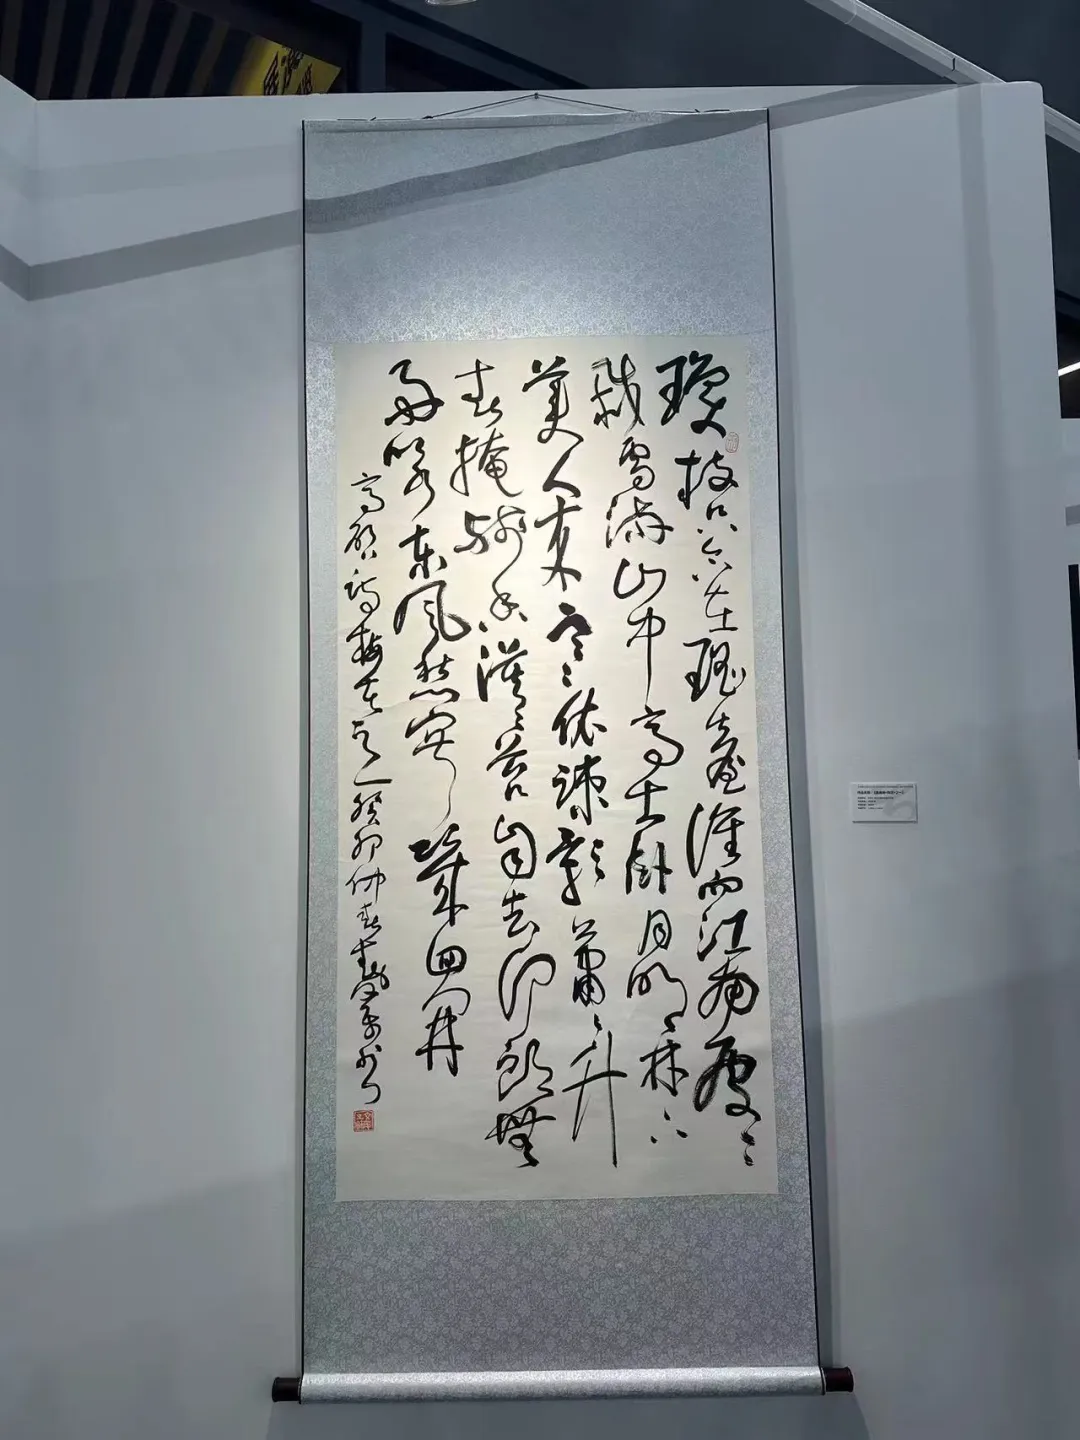 瓊枝只合在瑤臺誰向江南處〻
栽雪滿山中高士臥月明林下
美人来寒依疎影蕭〻竹
春掩殘香漠〻苔自去何郎無
好咏東風愁寂幾回開
高啟詩梅花之一癸卯仲春